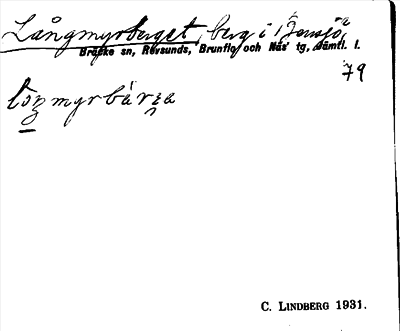 Långmyrberget, berg i Bensjö,
Bräcke sn, Revsunds, Brunflo och Näs' tg, Jämtl. l.
79
C. LINDBERG 1931.